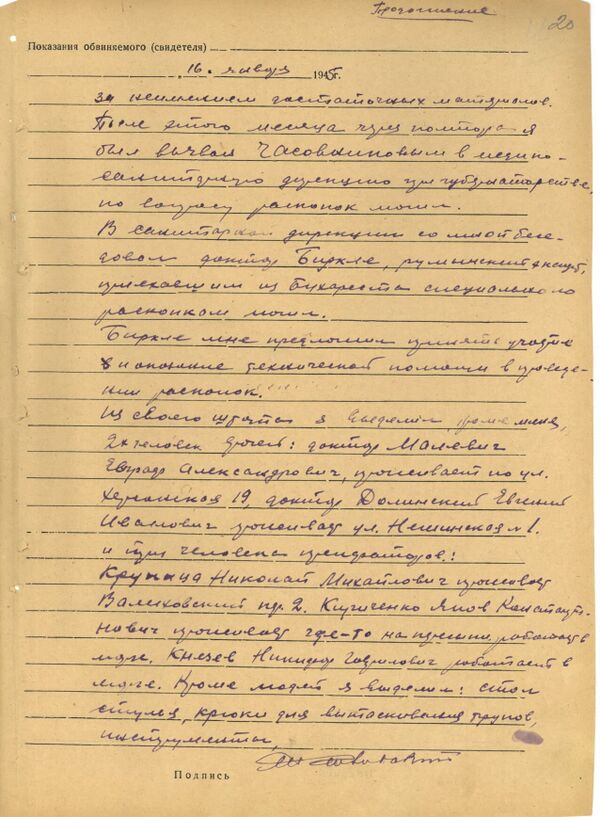 Продолжение
20
Показания обвиняемого (свидетеля)
16. января 1945г.
за неимением достаточных материалов.
После этого месяца через полтора я
был вызван Часовниковым в медико-
санитарную дирекцию при губернаторстве,
по вопросу раскопок могил.
В санитарной дирекции со мной бесе-
довал доктор Биркле, румынский
приехавшим из Бухареста специально по
раскопкам могил.
Биркле мне предложил принять участие
в и оказание технической помощи в проведе-
нии раскопок.
Из своего штата я выделил, кроме меня,
2х человек врачей: доктор Малевич
Евграф Александрович, проживает по ул.
Херсонская 19, доктор Долинский Евгений
Иванович проживает ул. Нежинская № 1.
и три человека препараторов:
Крупица Николай Михайлович проживает
Валиховский пер. 2. Кириченко Яков Констант-
нович проживает где-то на Пересыпи, работает в
морге. Князев Никифор Гаврилович работает в
морге. Кроме людей я выделил: стол
стулья, крюки для вытаскования трупов,
инструменты,
Подпись